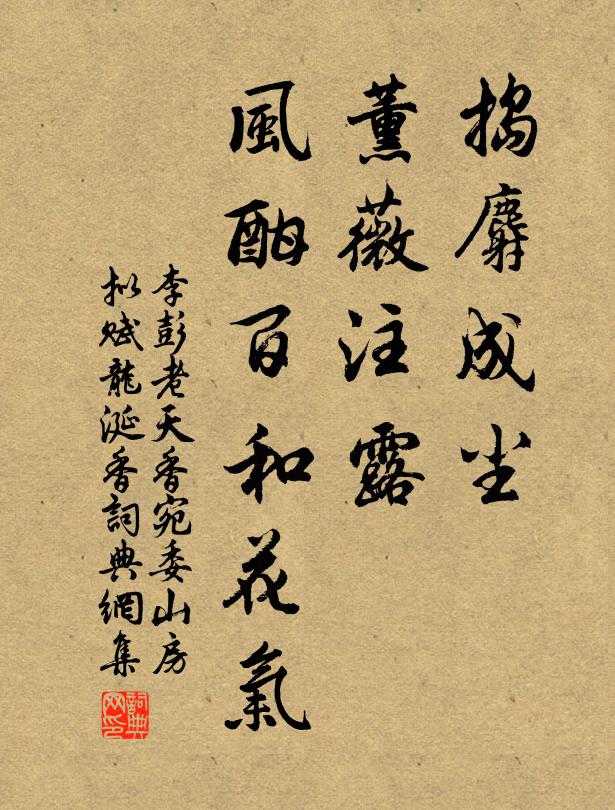 搗麝成尘
薰薇注露
風酣百和花氣
李彭老天香宛委山房
拟赋龍涎香詞典網集
詞典
网印